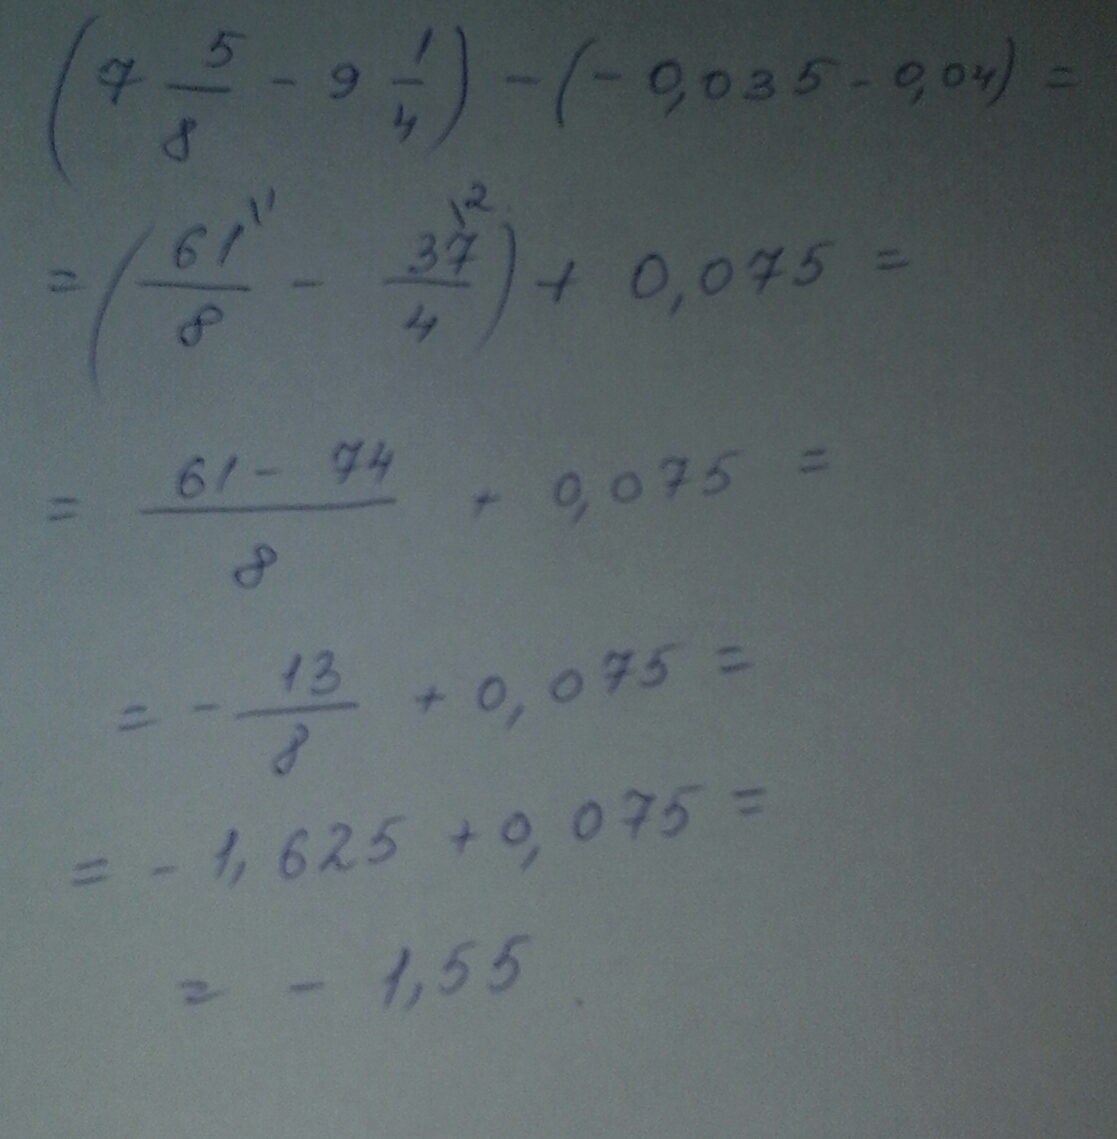 (7 5/8 - 9 1/4) - (- 0,035 - 0,04) =
= (61\1/8 - 37\2/4) + 0,075 =
= 61 - 74/8 + 0,075 =
= - 13/8 + 0,075 =
= - 1,625 + 0,075 =
= - 1,55